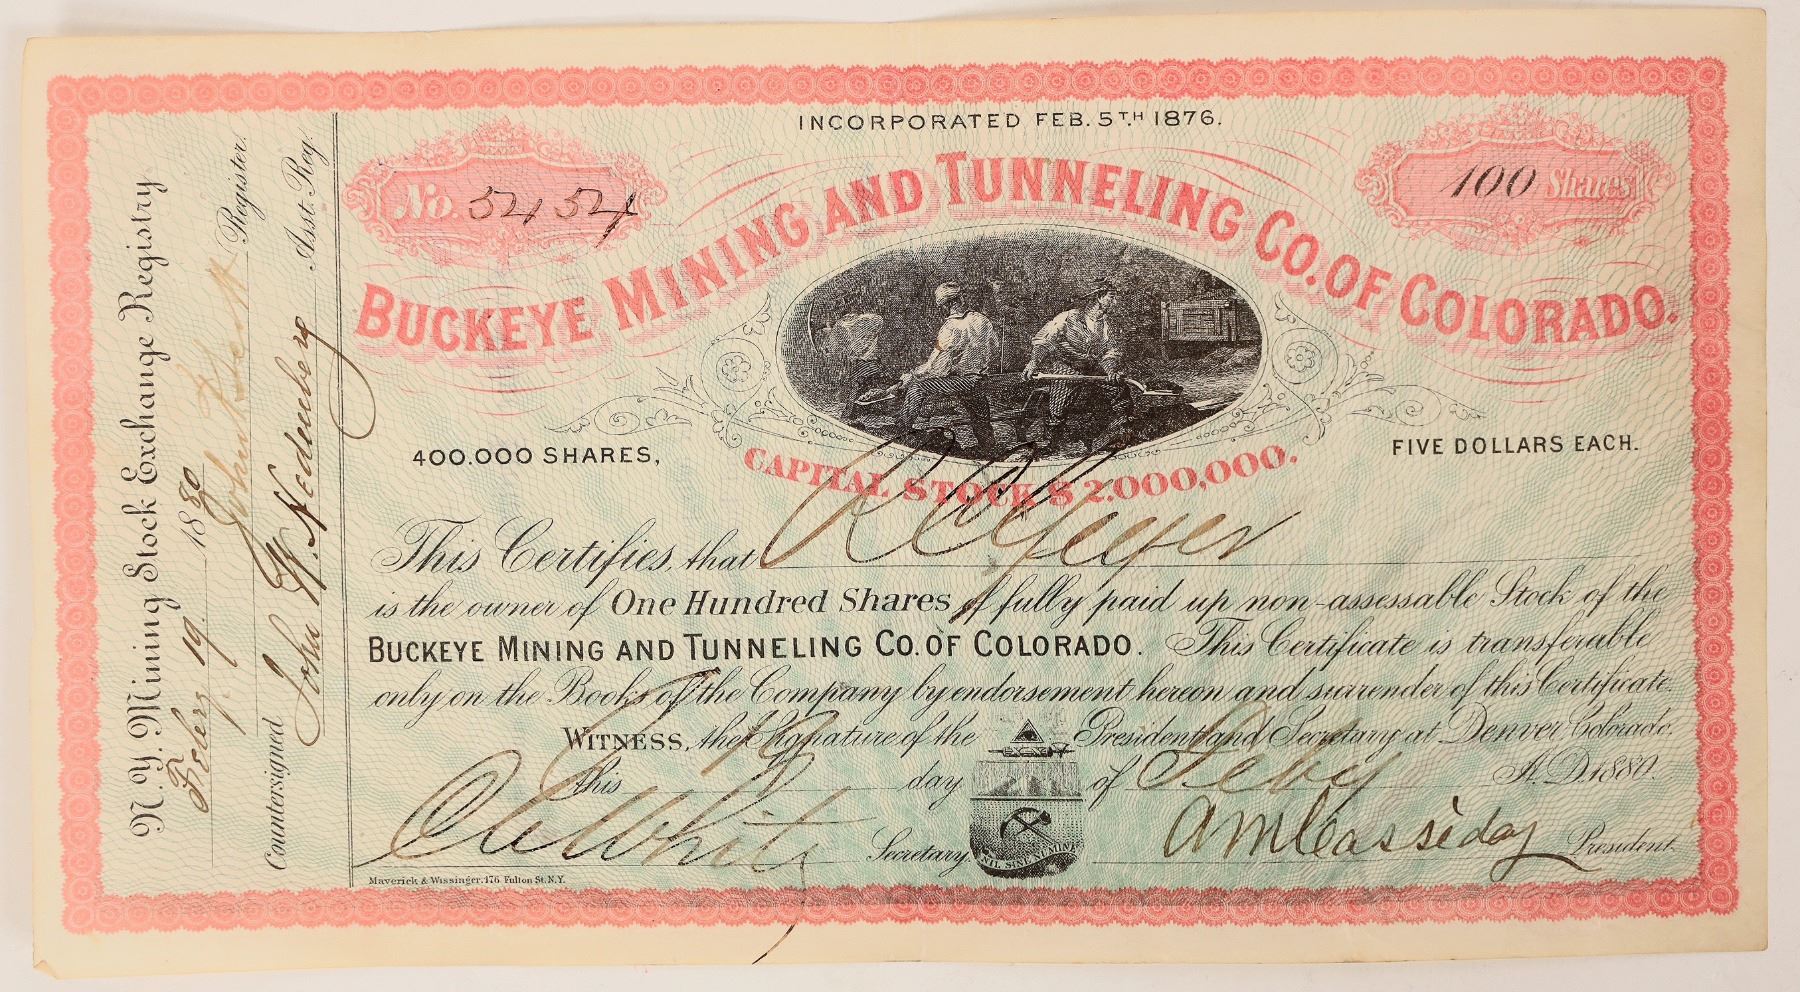 N.Y. Mining Stock Exchange Registry
Feby 19 1880
John Register.
Countersigned John W. Nedenberg Asst. Reg.
INCORPORATED FEB. 5TH 1876.
No. 5454
100 Shares
BUCKEYE MINING AND TUNNELING CO. OF COLORADO.
400.000 SHARES,
FIVE DOLLARS EACH.
CAPITAL STOCK $2.000,000.
This Certifies, that R P Geyer
is the owner of One Hundred Shares of fully paid up non-assessable Stock of the
BUCKEYE MINING AND TUNNELING CO. OF COLORADO. This Certificate is transferable
only on the Books of the Company by endorsement hereon and surrender of this Certificate.
WITNESS, the Signature of the President and Secretary at Denver Colorado.
this 19 day of Feby A.D. 1880.
White Secretary.
A M Cassiday President.
NIL SINE NUMINE
Maverick & Wissinger. 176 Fulton St. N.Y.